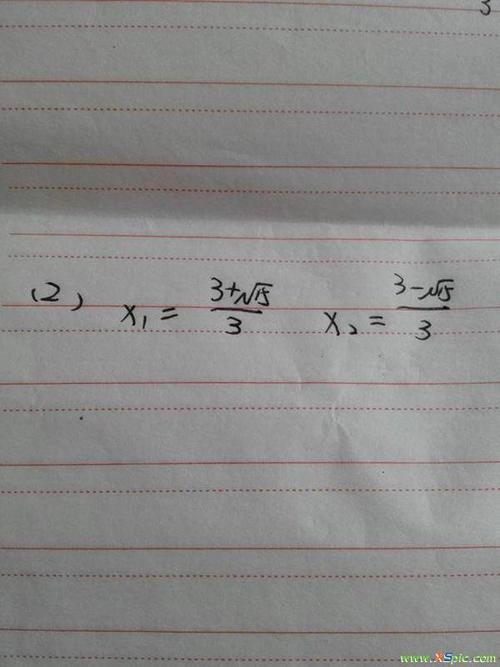 3
(2) x₁ = (3+√15)/3 x₂ = (3-√15)/3
www.XSpic.com